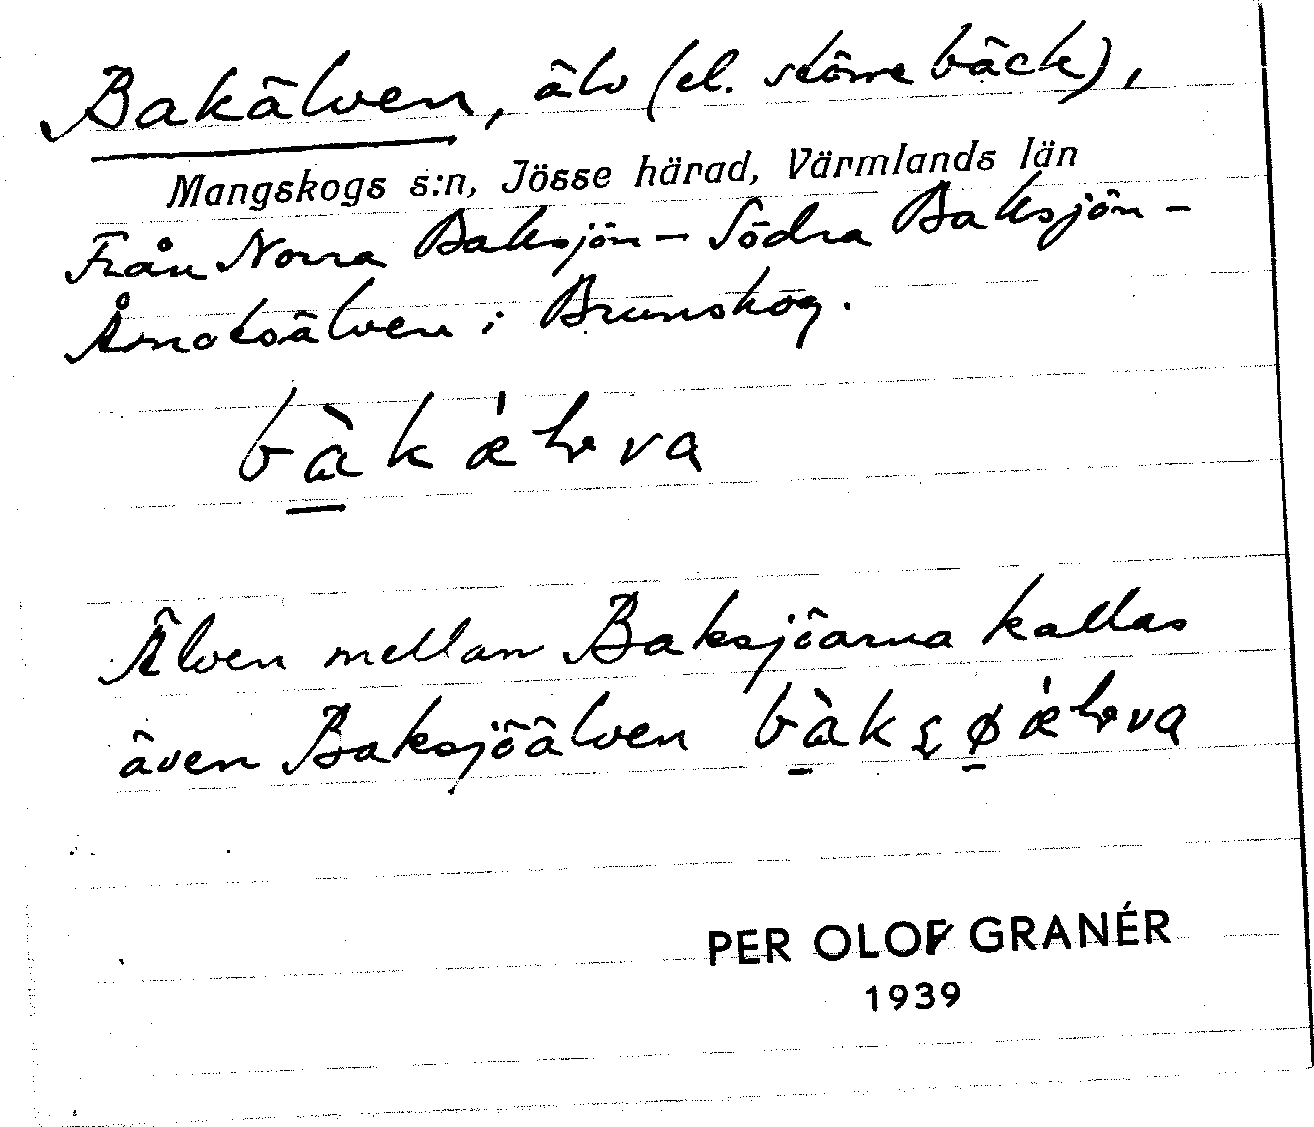 Bakälven, älv (el. större bäck),
Mangskogs s:n, Jösse härad, Värmlands län
Från Norra Baksjön – Södra Baksjön –
Årnotsälven i Brunskog.
Älven mellan Baksjöarna kallas
även Baksjöälven
PER OLOF GRANÉR
1939